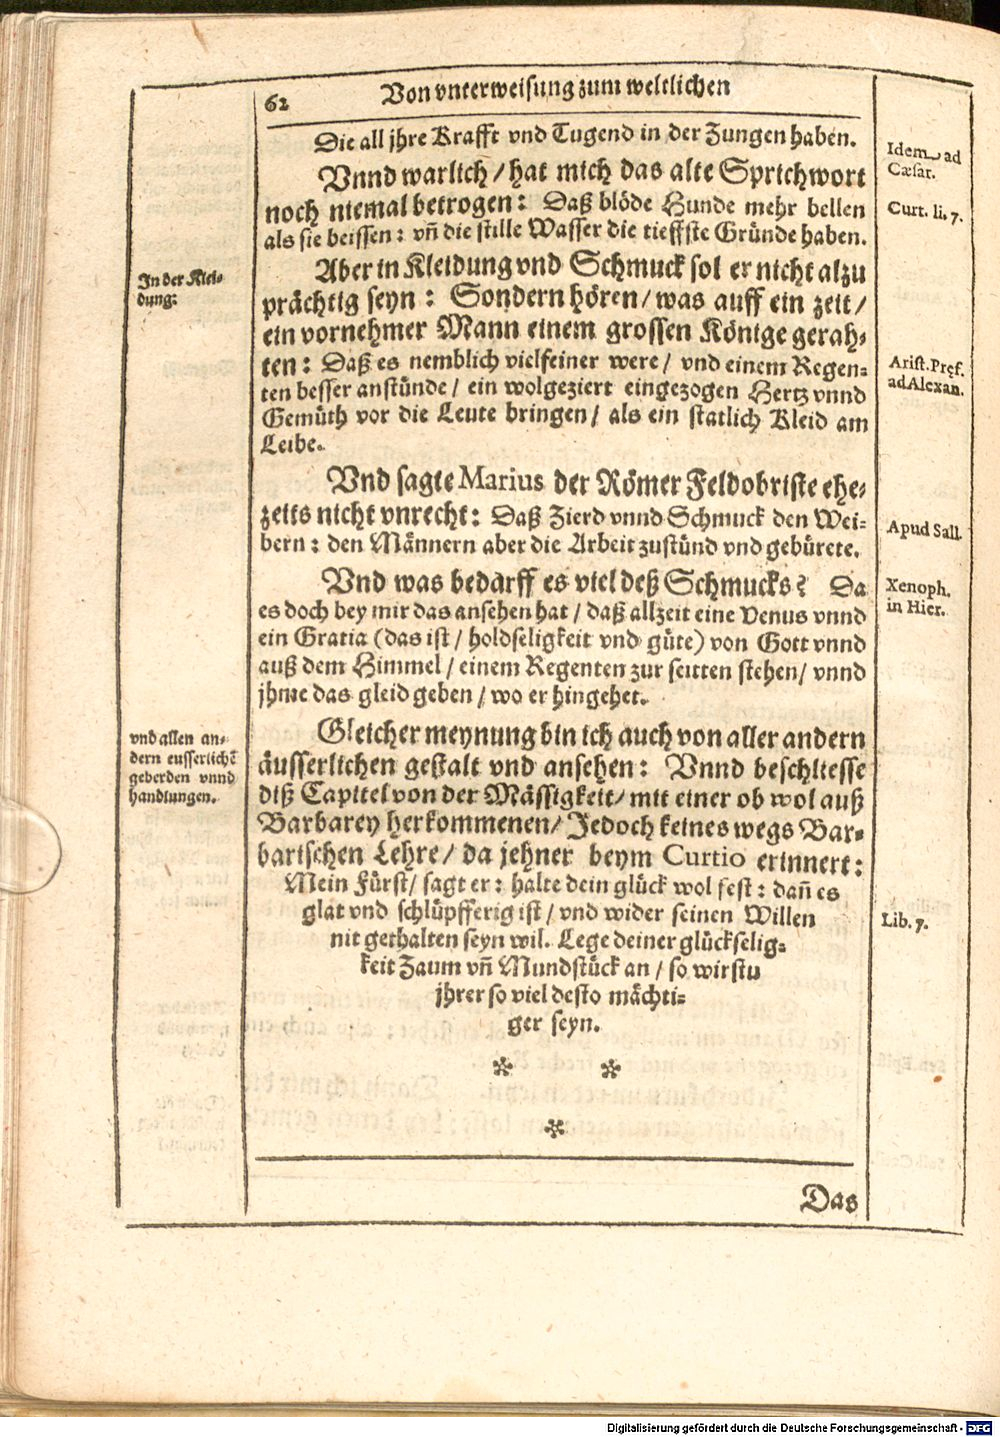 62
Von vnterweisung zum weltlichen
Die all jhre Krafft vnd Tugend in der Zungen haben.
Idem ad
Cæsar.
Vnnd warlich / hat mich das alte Sprichwort
noch niemal betrogen: Daß blöde Hunde mehr bellen
Curt. li. 7.
als sie beissen: vn̄ die stille Wasser die tieffste Gründe haben.
In der Klei-
dung:
Aber in Kleidung vnd Schmuck sol er nicht alzu
prächtig seyn: Sondern hören / was auff ein zeit /
ein vornehmer Mann einem grossen Könige gerah-
ten: Daß es nemblich vielfeiner were / vnd einem Regen-
Arist. Pref.
ad Alexan.
ten besser anstünde / ein wolgeziert eingezogen Hertz vnnd
Gemüth vor die Leute bringen / als ein statlich Kleid am
Leibe.
Vnd sagte Marius der Römer Feldobriste ehe-
zeits nicht vnrecht: Daß Zierd vnnd Schmuck den Wei-
Apud Sall.
bern: den Männern aber die Arbeit zustünd vnd gebürete.
Vnd was bedarff es viel deß Schmucks? Da
Xenoph.
in Hier.
es doch bey mir das ansehen hat / daß allzeit eine Venus vnnd
ein Gratia (das ist / holdseligkeit vnd güte) von Gott vnnd
auß dem Himmel / einem Regenten zur seitten stehen / vnnd
jhme das gleid geben / wo er hingehet.
vnd allen an-
dern eusserlichē
geberden vnnd
handlungen.
Gleicher meynung bin ich auch von aller andern
äusserlichen gestalt vnd ansehen: Vnnd beschliesse
diß Capitel von der Mässigkeit / mit einer ob wol auß
Barbarey herkommenen / Jedoch keines wegs Bar-
barischen Lehre / da jehner beym Curtio erinnert:
Mein Fürst / sagt er: halte dein glück wol fest: dan̄ es
glat vnd schlüpfferig ist / vnd wider seinen Willen
Lib. 7.
nit gethalten seyn wil. Lege deiner glückselig-
keit Zaum vn̄ Mundstück an / so wirstu
jhrer so viel desto mächti-
ger seyn.
Das
Digitalisierung gefördert durch die Deutsche Forschungsgemeinschaft - DFG